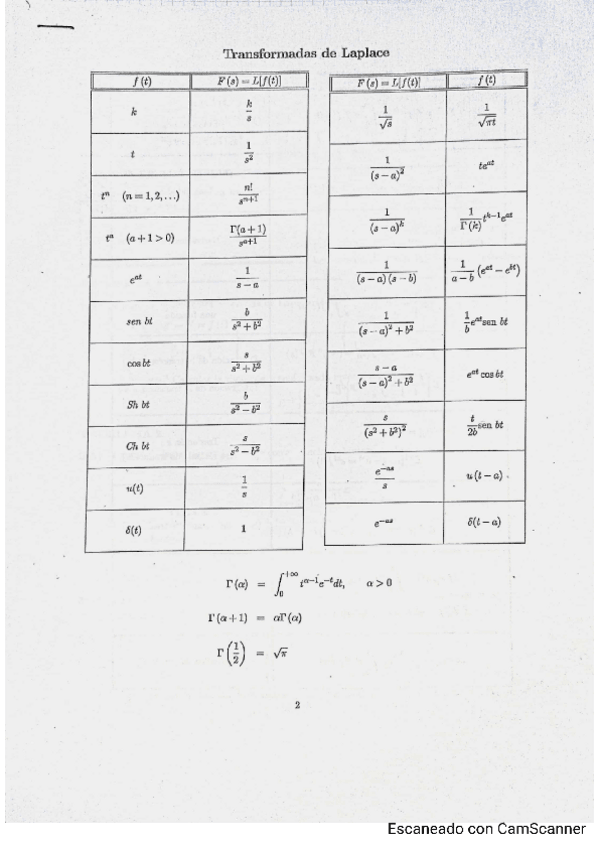 Transformadas de Laplace
f (t) F (s) = L[f(t)]
k k/s
t 1/s²
tⁿ (n = 1, 2, ...) n!/sⁿ⁺¹
tᵃ (a + 1 > 0) Γ(a+1)/sᵃ⁺¹
eᵃᵗ 1/(s − a)
sen bt b/(s² + b²)
cos bt s/(s² + b²)
Sh bt b/(s² − b²)
Ch bt s/(s² − b²)
u(t) 1/s
δ(t) 1
F (s) = L[f(t)] f (t)
1/√s 1/√(πt)
1/(s − a)² teᵃᵗ
1/(s − a)ᵏ 1/Γ(k) tᵏ⁻¹eᵃᵗ
1/((s − a)(s − b)) 1/(a − b) (eᵃᵗ − eᵇᵗ)
1/((s − a)² + b²) 1/b eᵃᵗ sen bt
(s − a)/((s − a)² + b²) eᵃᵗ cos bt
s/(s² + b²)² t/2b sen bt
e⁻ᵃˢ/s u (t − a)
e⁻ᵃˢ δ(t − a)
Γ (α) = ∫₀⁺∞ tᵅ⁻¹e⁻ᵗdt, α > 0
Γ (α + 1) = αΓ (α)
Γ (1/2) = √π
2
Escaneado con CamScanner